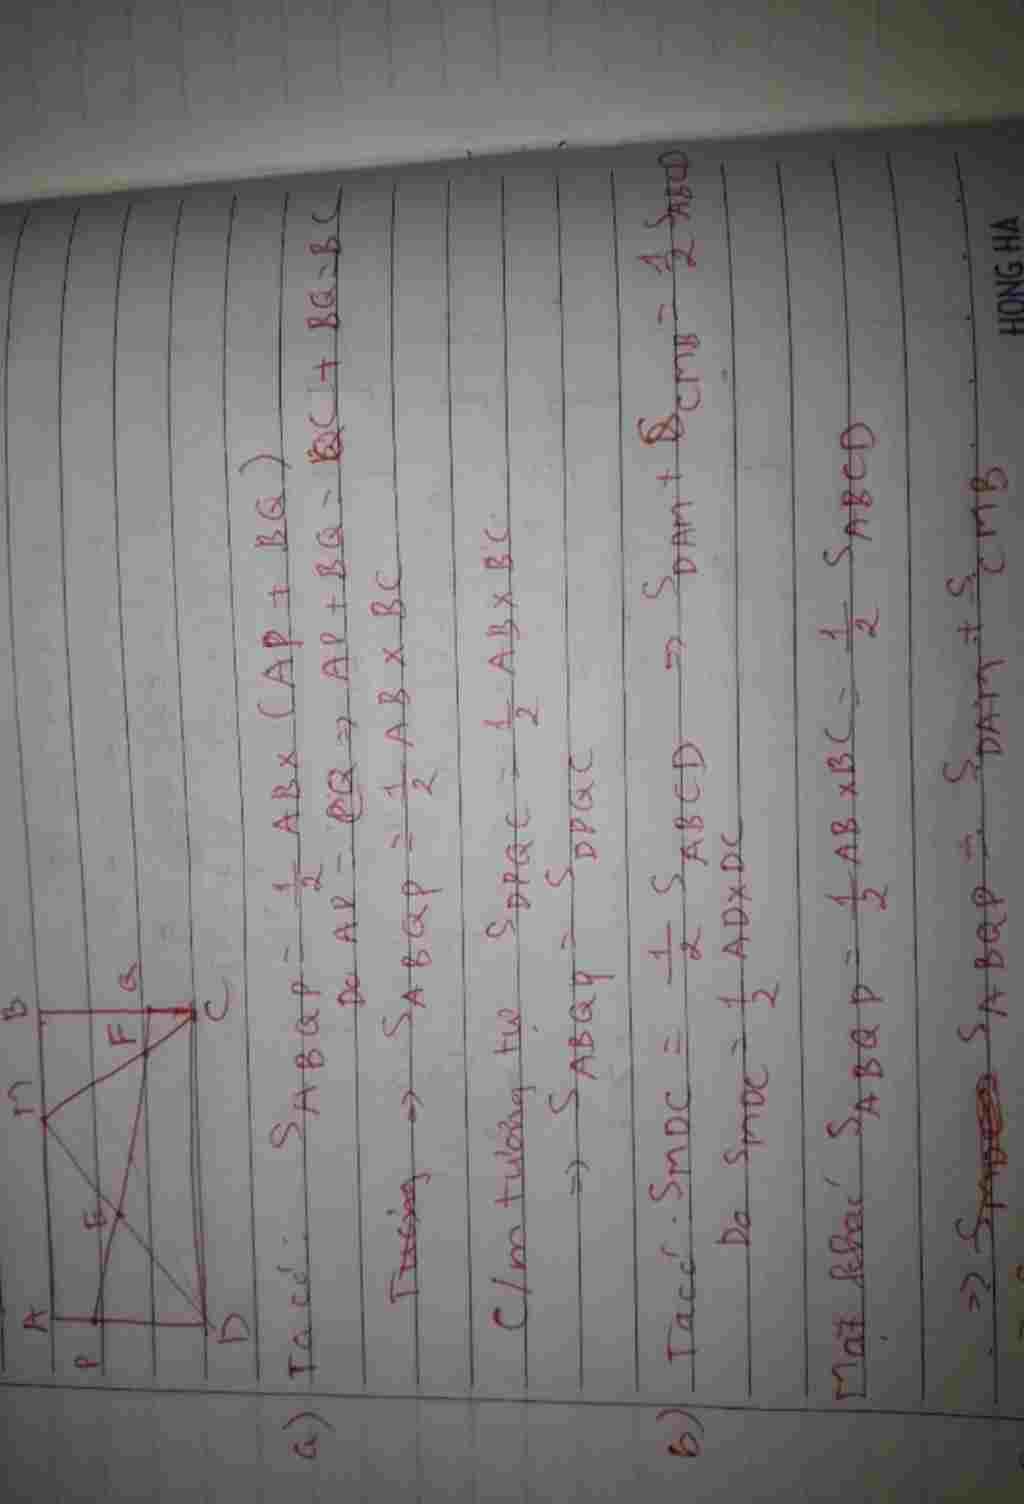 A M B
P E F Q
D C
a) Ta có: S_ABQP = 1/2 AB x (AP + BQ)
Do AP = QC => AP + BQ = QC + BQ = BC
=> S_ABQP = 1/2 AB x BC
C/m tương tự S_DPQC = 1/2 AB x BC
=> S_ABQP = S_DPQC
b) Ta có: S_MDC = 1/2 S_ABCD => S_DAM + S_CMB = 1/2 S_ABCD
Do S_MDC = 1/2 AD x DC
Mặt khác S_ABQP = 1/2 AB x BC = 1/2 S_ABCD
=> S_ABQP = S_DAM + S_CMB
HONG HA